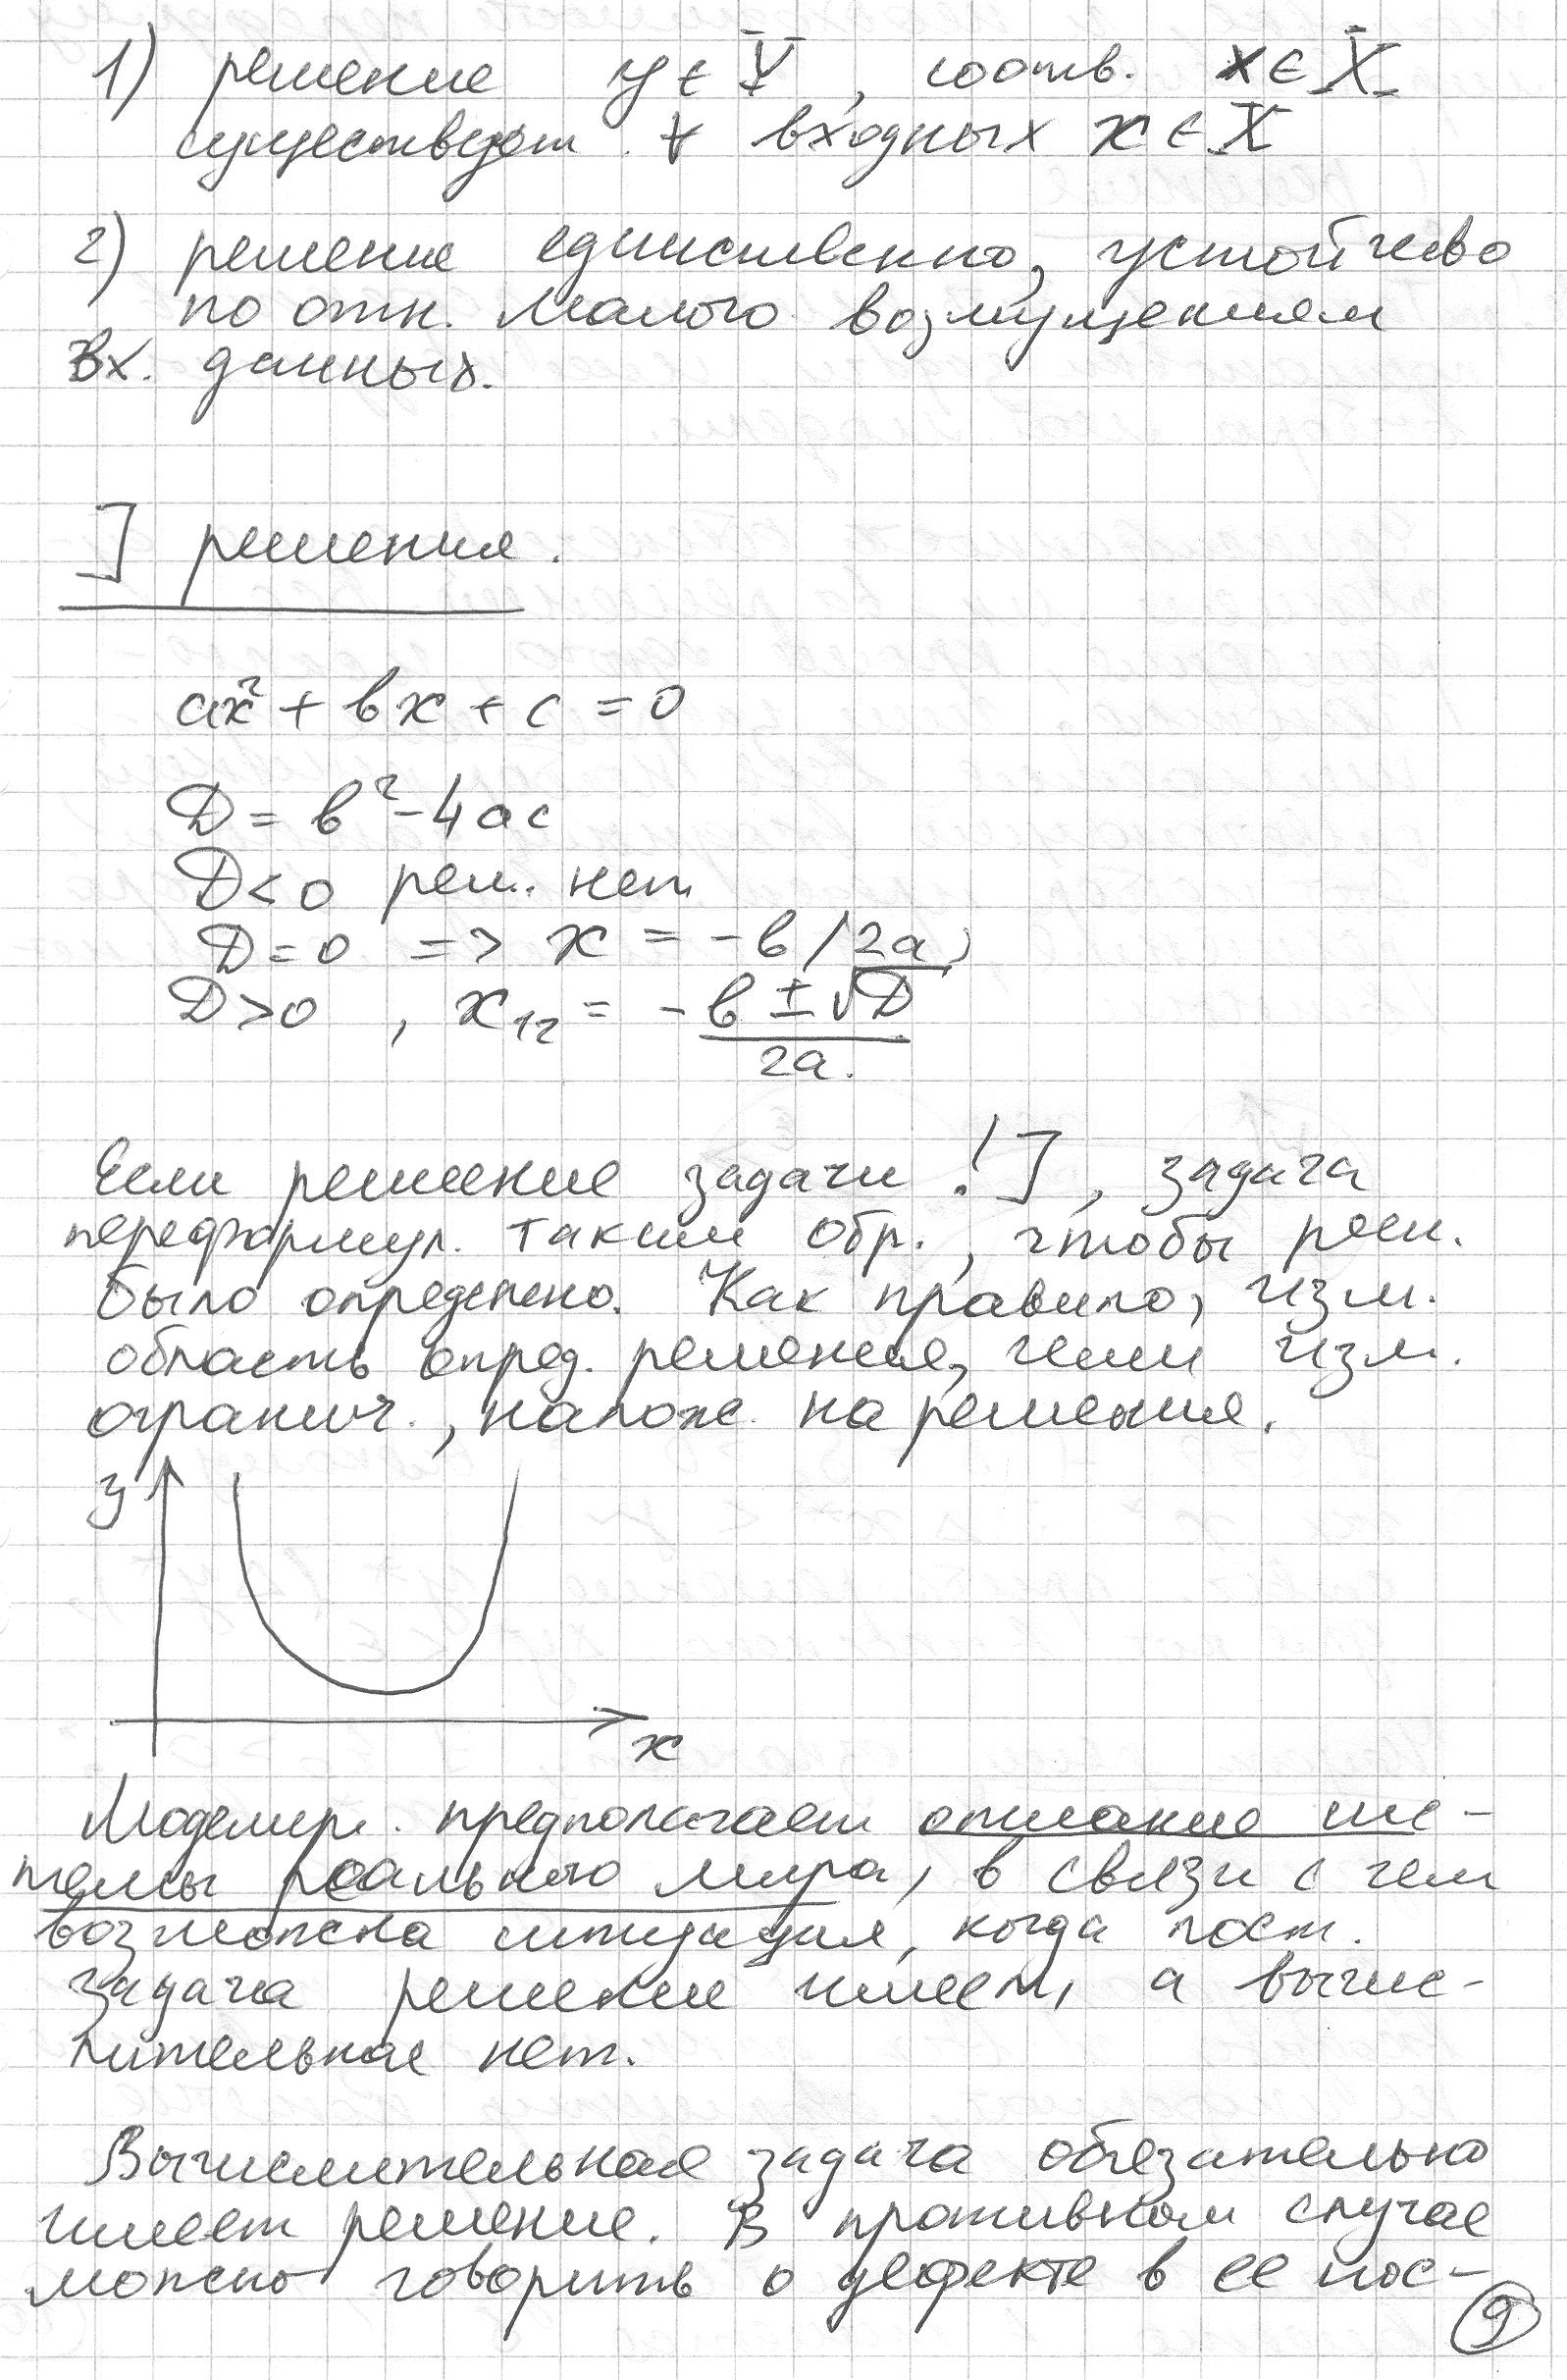 1) решение y ∈ Y, соотв. x ∈ X
существует ∀ входных x ∈ X
2) решение единственно, устойчиво
по отн. малого возмущениям
вх. данных.
∃ решения.
ax² + bx + c = 0
D = b² - 4ac
D < 0 реш. нет
D = 0 => x = -b / 2a,
D > 0, x₁₂ = -b ± √D
2a.
Если решение задачи !∃, задача
переформул. таким обр., чтобы реш.
было определено. Как правило, изм.
область опред. решения, или изм.
огранич., налож. на решения.
y
x
Моделир. предполагает описание сис-
темы реального мира, в связи с чем
возможна ситуация, когда пост.
задача решение имеет, а вычис-
лительная нет.
Вычислительная задача обязательно
имеет решение. В противном случае
можно говорить о дефекте в ее пос-
9